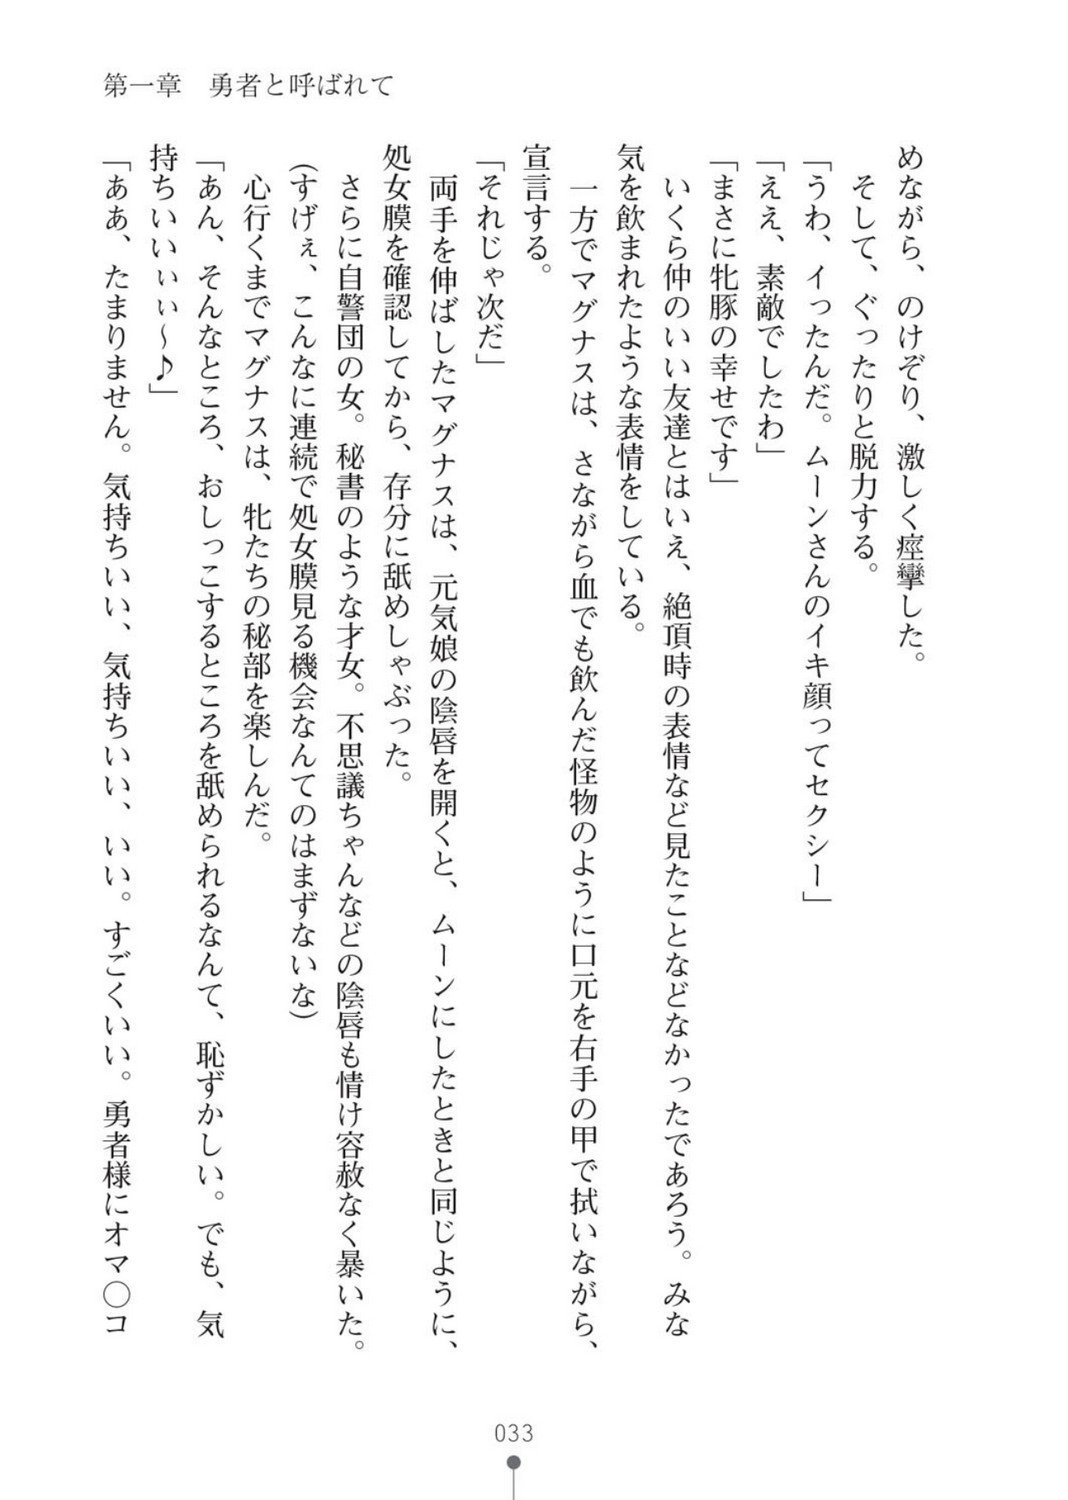 第一章　勇者と呼ばれて
めながら、のけぞり、激しく痙攣した。
　そして、ぐったりと脱力する。
「うわ、イったんだ。ムーンさんのイキ顔ってセクシー」
「ええ、素敵でしたわ」
「まさに牝豚の幸せです」
　いくら仲のいい友達とはいえ、絶頂時の表情など見たことなどなかったであろう。みな
気を飲まれたような表情をしている。
　一方でマグナスは、さながら血でも飲んだ怪物のように口元を右手の甲で拭いながら、
宣言する。
「それじゃ次だ」
　両手を伸ばしたマグナスは、元気娘の陰唇を開くと、ムーンにしたときと同じように、
処女膜を確認してから、存分に舐めしゃぶった。
　さらに自警団の女。秘書のような才女。不思議ちゃんなどの陰唇も情け容赦なく暴いた。
(すげぇ、こんなに連続で処女膜見る機会なんてのはまずないな)
　心行くまでマグナスは、牝たちの秘部を楽しんだ。
「あん、そんなところ、おしっこするところを舐められるなんて、恥ずかしい。でも、気
持ちいいぃぃ〜♪」
「ああ、たまりません。気持ちいい、気持ちいい、いい。すごくいい。勇者様にオマ〇コ
033